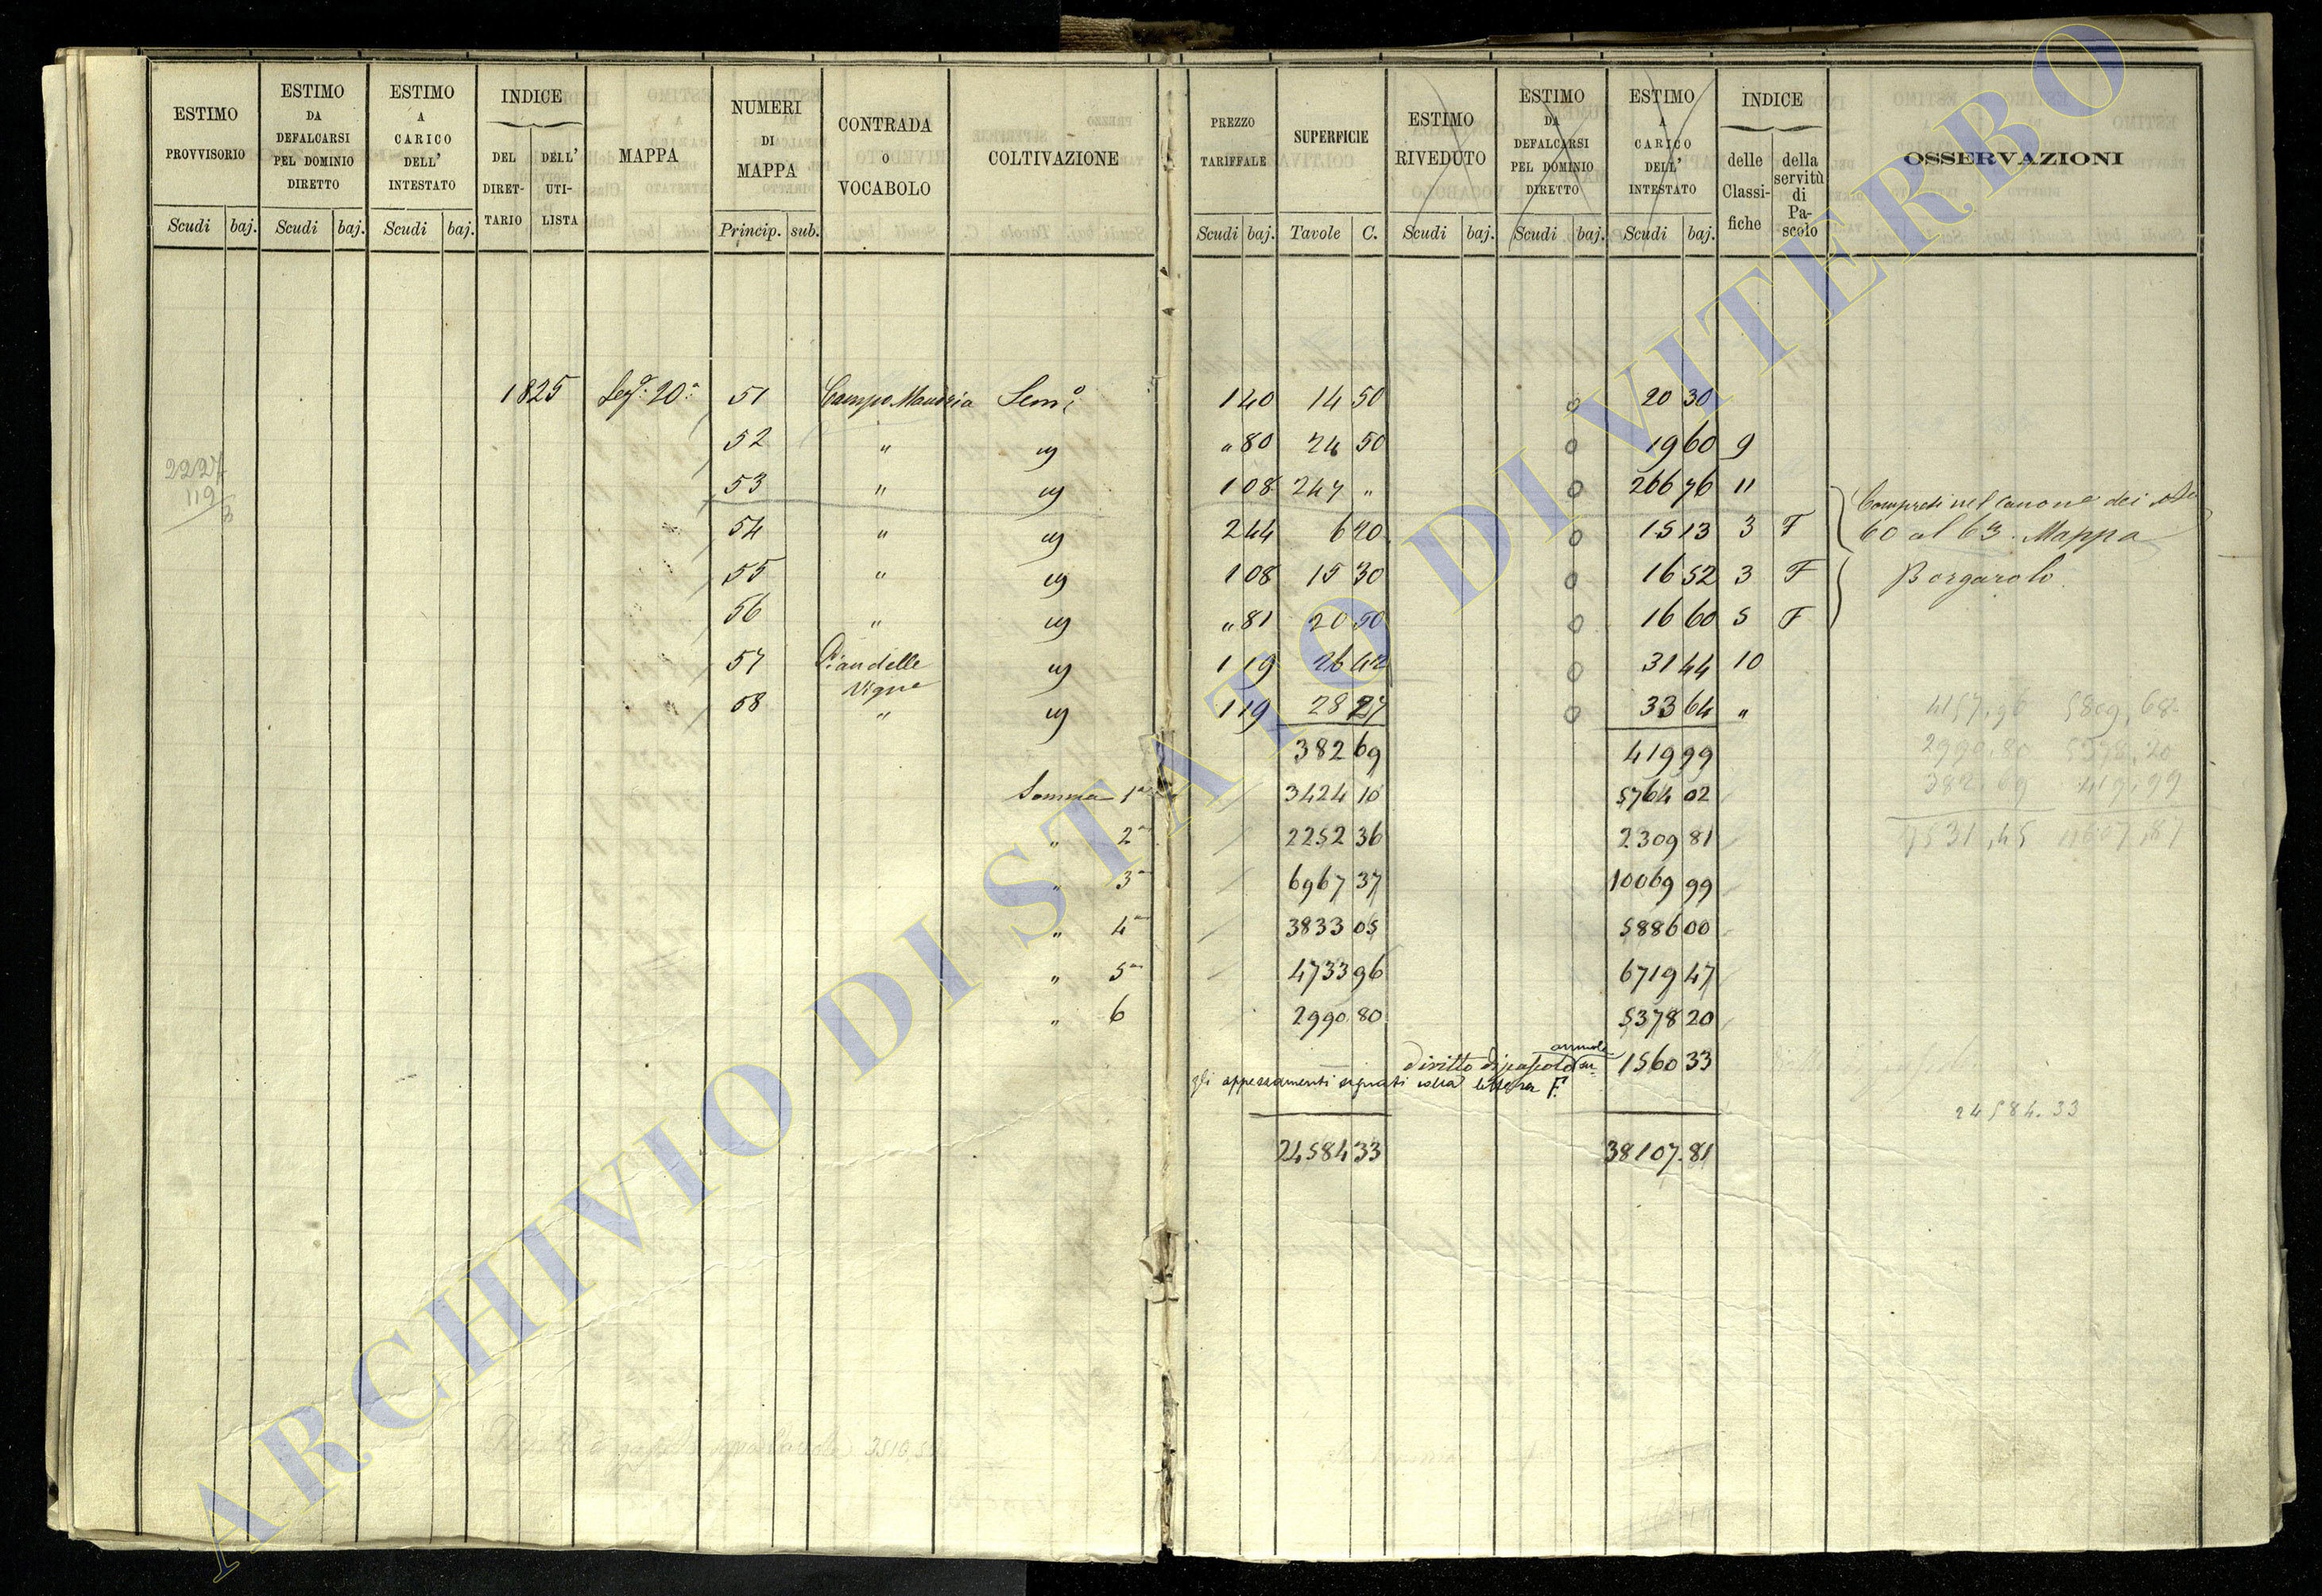 ESTIMO PROVVISORIO
ESTIMO DA DEFALCARSI PEL DOMINIO DIRETTO
ESTIMO A CARICO DELL' INTESTATO
INDICE
DEL DIRETTARIO
DELL' UTILISTA
MAPPA
NUMERI DI MAPPA
CONTRADA O VOCABOLO
COLTIVAZIONE
PREZZO TARIFFALE
SUPERFICIE
ESTIMO RIVEDUTO
ESTIMO DA DEFALCARSI PEL DOMINIO DIRETTO
ESTIMO A CARICO DELL' INTESTATO
INDICE
delle Classifiche
della servitù di Pascolo
OSSERVAZIONI
Scudi baj. Scudi baj. Scudi baj. Princip. sub. Scudi baj. Tavole C. Scudi baj. Scudi baj. Scudi baj.
1825 Sez. 20. 51 Campo Mandria Sem. 1 40 14 50 0 20 30
52 " " 80 24 50 0 19 60 9
2227
119
53 " 1 08 247 " 0 266 76 11
54 " 2 44 6 20 0 15 13 3 F
Compresi nel canone dei
60 al 63. Mappa
55 " 1 08 15 30 0 16 52 3 F
Borgarolo
56 " " 81 20 50 0 16 60 5 F
57 Piandelle Vigne 1 19 26 42 0 31 44 10
58 " 1 19 28 27 0 33 64 "
382 69 419 99
Somma 1a 3424 10 5764 02
" 2a 2252 36 2309 81
" 3a 6967 37 10069 99
" 4a 3833 05 5886 00
" 5a 4733 96 6719 47
" 6 2990 80 5378 20
diritto di pascolo annuale su 1560 33
gli appezzamenti segnati colla lettera F.
24584 33 38107.81
4157.96 5809.68
2990 80 5378.20
382.69 419.99
7531,45 11607,87
24584.33
ARCHIVIO DI STATO DI VITERBO